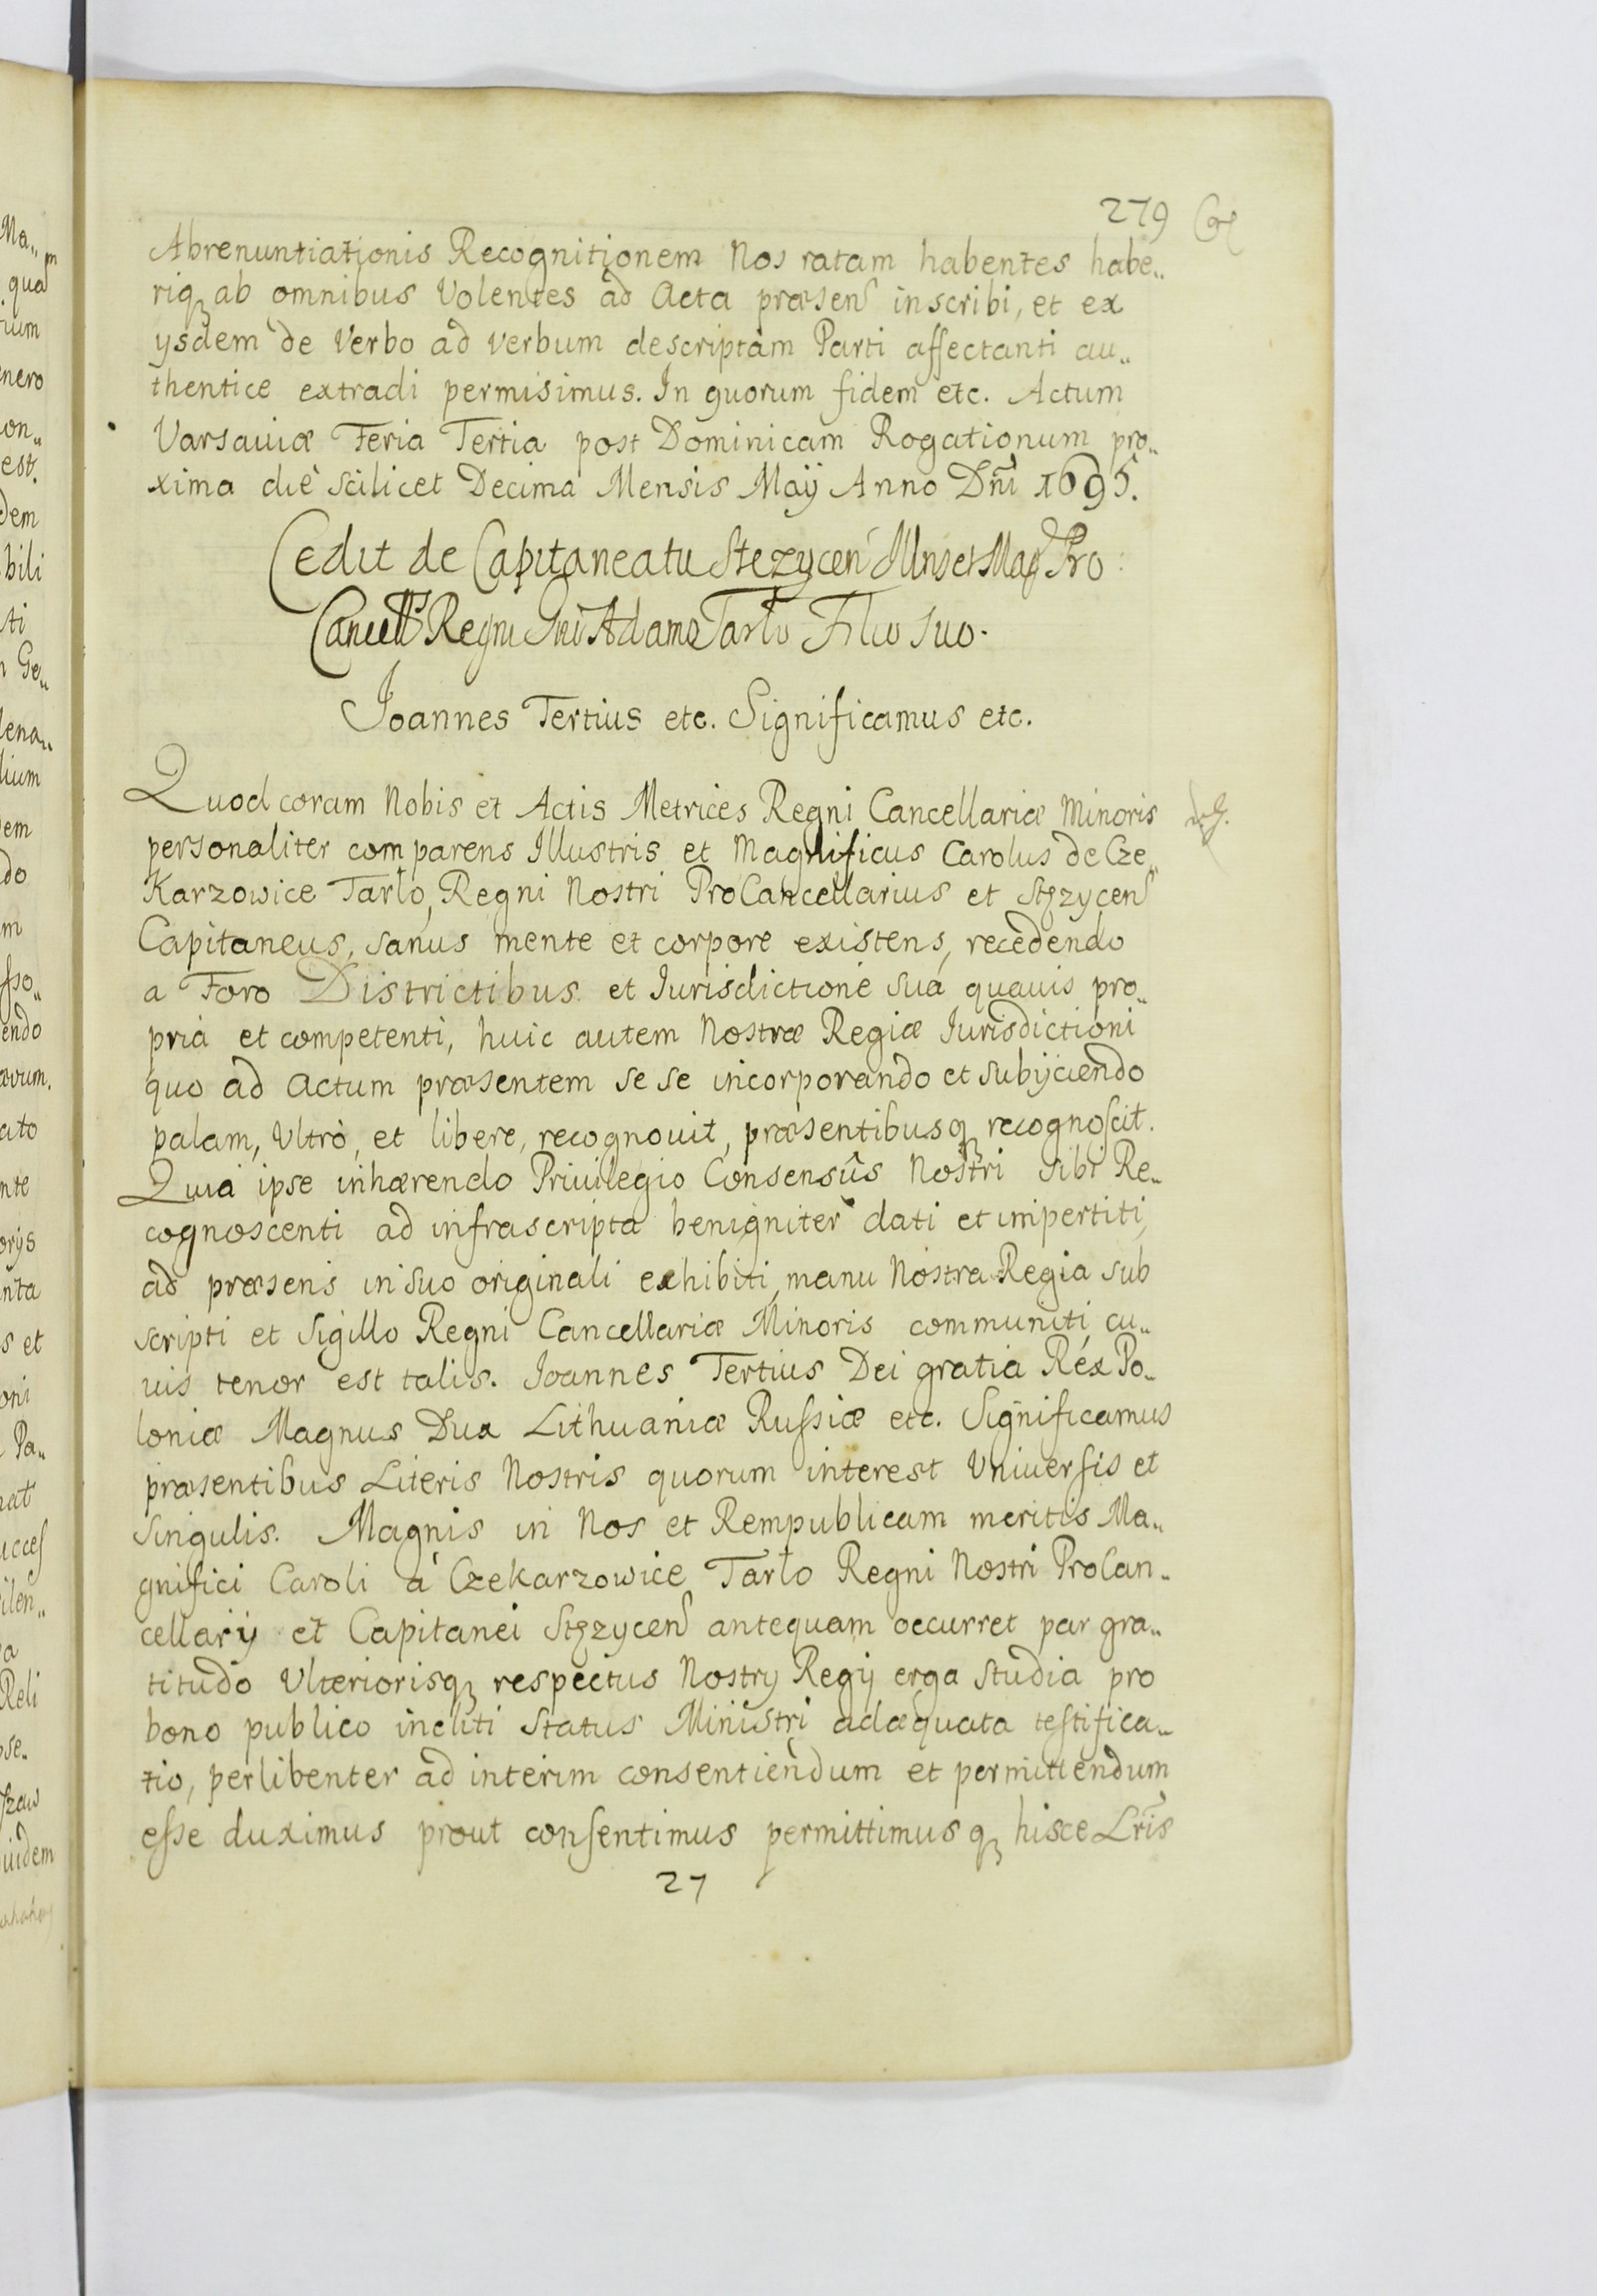 279
Abrenuntiationis Recognitionem Nos ratam habentes habe„
riqꝫ ab omnibus Volentes ad Acta præsen inscribi, et ex
ysdem de Verbo ad verbum descriptam Parti affectanti au„
thentice extradi permisimus. In quorum fidem etc. Actum
Varsaviæ Feria Tertia post Dominicam Rogationum pro„
xima die scilicet Decima Mensis Maÿ Anno Dñi 1695.
Cedit de Capitaneatu Stezycen Illris et Mag Pro:
Cancell Regni Adamo Tarło Filio suo.
Joannes Tertius etc. Significamus etc.
Quod coram Nobis et Actis Metrices Regni Cancellariæ Minoris
personaliter comparens Illustris et Magnificus Carolus de Cze„
Karzowice Tarło, Regni Nostri ProCancellarius et Stęzycen
Capitaneus, sanus mente et corpore existens, recedendo
a Foro Districtibus et Iurisdictione suâ quavis pro„
pria et competenti, huic autem Nostræ Regiæ Iurisdictioni
quo ad Actum præsentem se se incorporando et subÿciendo
palam, Ultrò, et libere, recognovit, præsentibusqꝫ recognoscit.
Quia ipse inhærendo Privilegio Consensûs Nostri sibi Re„
cognoscenti ad infrascripta benigniter dati et impertiti,
ad præsens in suo originali exhibiti, manu Nostra Regia sub
scripti et Sigillo Regni Cancellariæ Minoris communiti, cu„
ius tenor est talis. Joannes Tertius Dei gratia Rex Po„
loniæ Magnus Dux Lithuaniæ Russiæ etc. Significamus
præsentibus Literis Nostris quorum interest Vniversis et
singulis. Magnis in Nos et Rempublicam meritis Ma„
gnifici Caroli à Czekarzowice Tarło Regni Nostri ProCan„
cellarÿ et Capitanei Stęzycen antequam occurret par gra„
titudo Ulteriorisqꝫ respectus Nostry Regÿ erga studia pro
bono publico incliti Status Ministri adæquata testifica„
tio, perlibenter ad interim consentiendum et permittendum
esse duximus prout consentimus permittimusqꝫ hisce Lris
27